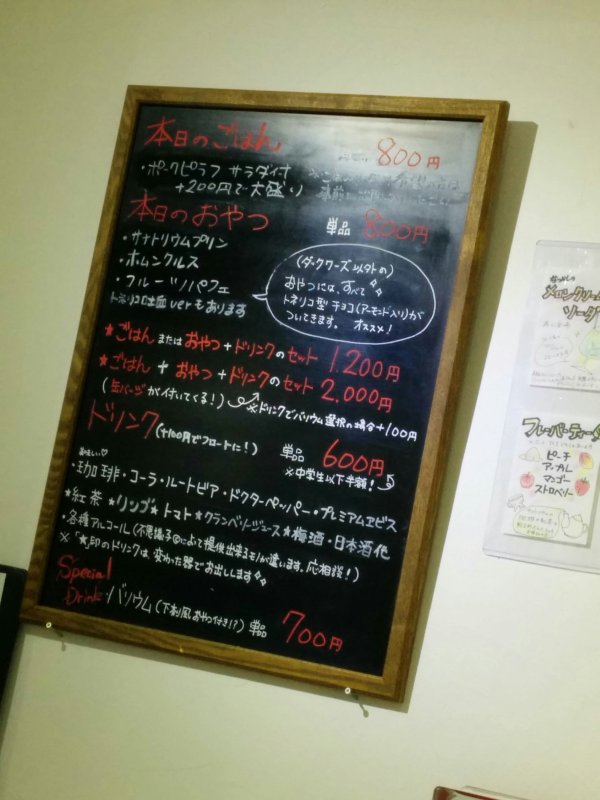 本日のごはん 800円
・ポークピラフ サラダ付
+200円で大盛り
本日のおやつ 単品 800円
・サナトリウムプリン
・ホムンクルス
・フルーツパフェ
トネリコ吐血verもあります
(ダックワーズ以外の)
おやつには、すべて
トネリコ型チョコ(アーモンド入り)が
ついてきます。 オススメ!
★ごはん または おやつ+ドリンクのセット 1,200円
★ごはん + おやつ+ドリンクのセット 2,000円
(缶バッジが付いてくる!) ※ドリンクでバリウム選択の場合+100円
ドリンク(+100円でフロートに!) 単品 600円
※中学生以下半額!
美味しい♡
・珈琲・コーラ・ルートビア・ドクターペッパー・プレミアムヱビス
★紅茶 ★リンゴ★トマト★クランベリージュース★梅酒・日本酒他
・各種アルコール(不思議子の によって提供出来るモノが違います。応相談!)
※「★」印のドリンクは、変わった器でお出しします
Special
Drink:バリウム(下剤風おやつ付き!?) 単品 700円
メロンクリーム
ソーダ
フレーバーティー
ピーチ
アップル
マンゴー
ストロベリー